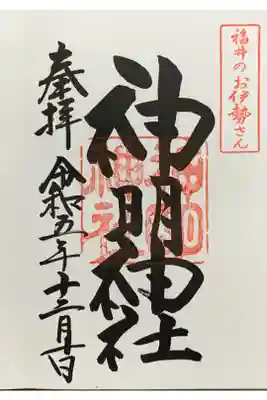 福井のお伊勢さん
神明神社
奉拝
令和五年十二月十日